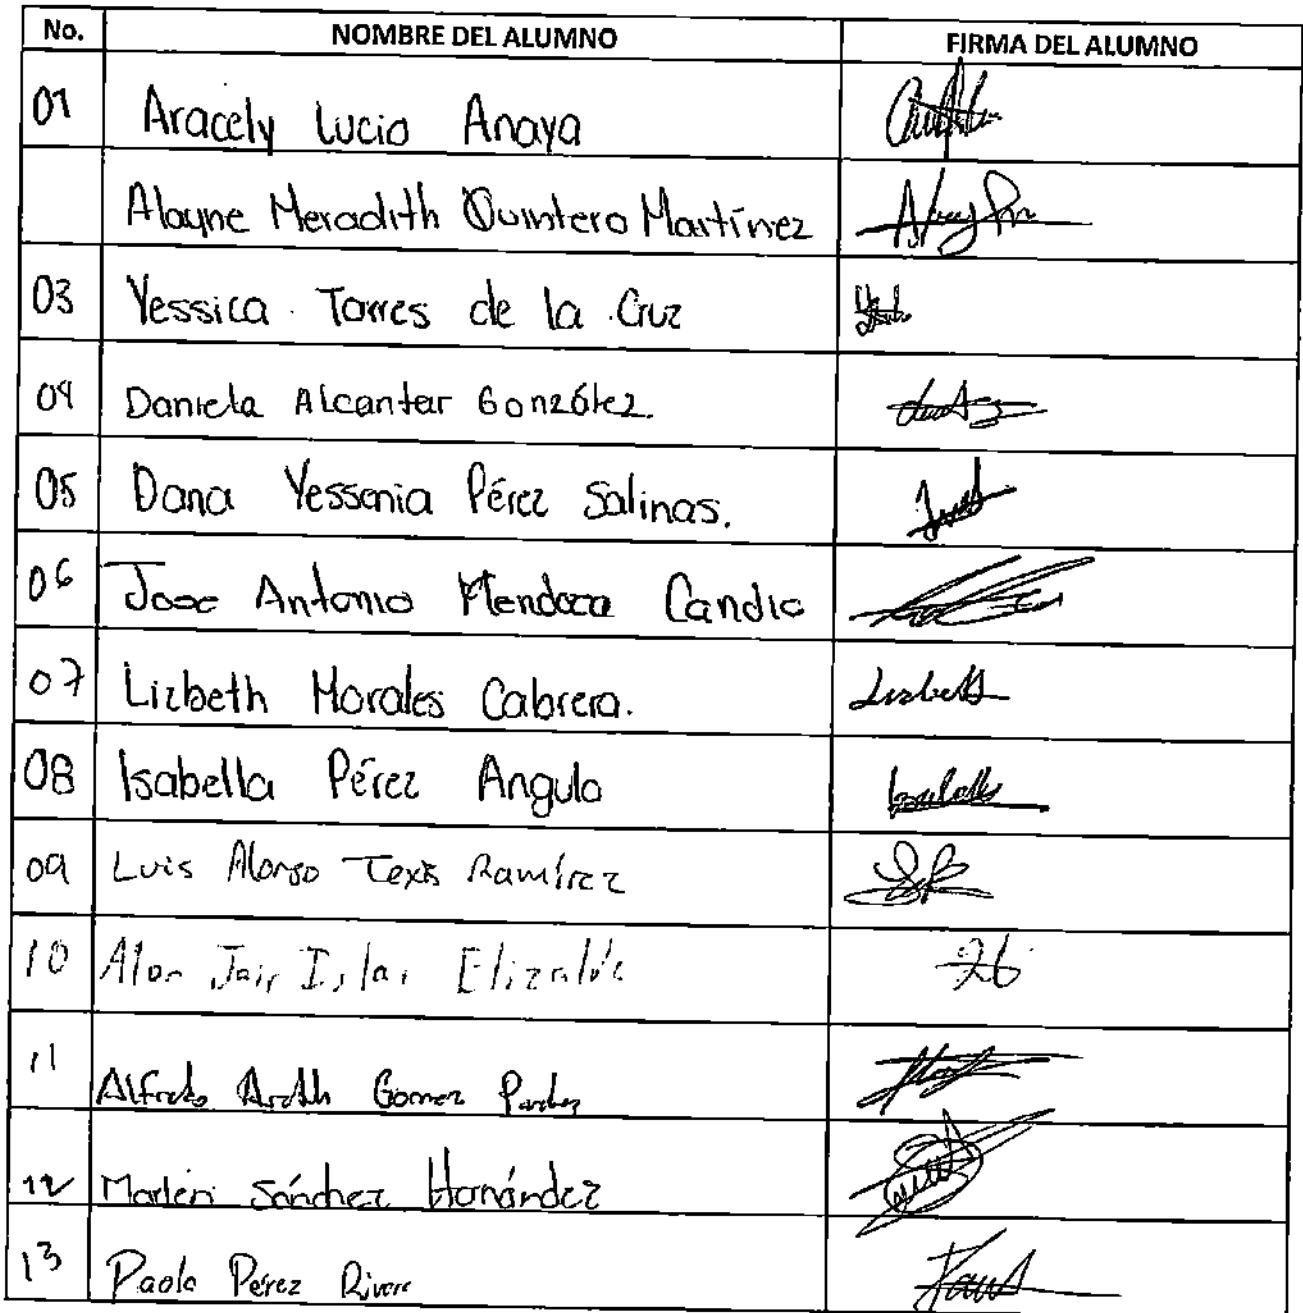 No. NOMBRE DEL ALUMNO FIRMA DEL ALUMNO
01 Aracely Lucio Anaya
Alayne Meradith Quintero Martínez
03 Yessica Torres de la Cruz
04 Daniela Alcantar González.
05 Dana Yessenia Pérez Salinas.
06 Jose Antonio Mendoza Candia
07 Lizbeth Morales Cabrera. Lizbeth
08 Isabella Pérez Angulo
09 Luis Alonso Texis Ramírez
10 Alan Jair Islas Elizalde
11 Alfredo Gomez
12 Marlen Sánchez Hernández
13 Paola Perez Rivera